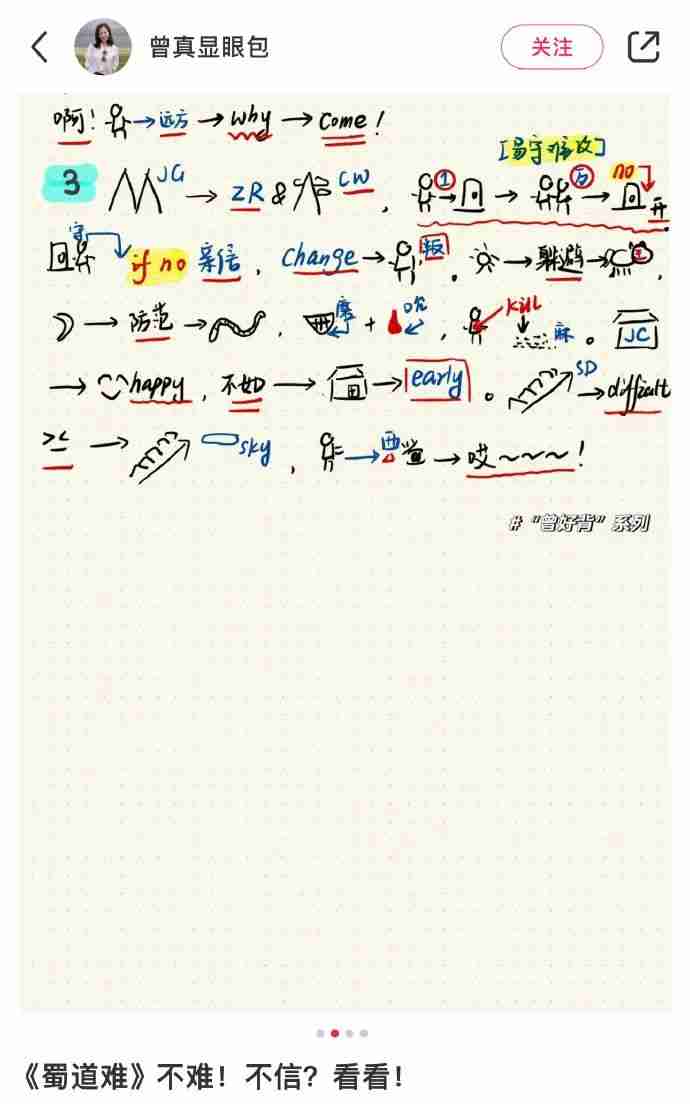 曾真显眼包 关注
啊! → 远方 → why → come!
[易守难攻]
3 JG → ZR & CW , ① → → 万 → no 开
守 if no 亲信, change → 叛 。 → 躲避 → ,
→ 防范 → , 磨 + 吮 , kill 麻 。 JC
→ happy, 不如 → → early 。 SD → difficult
→ sky , → 西 → 哎～～～!
#“曾好背”系列
《蜀道难》不难！不信？看看！